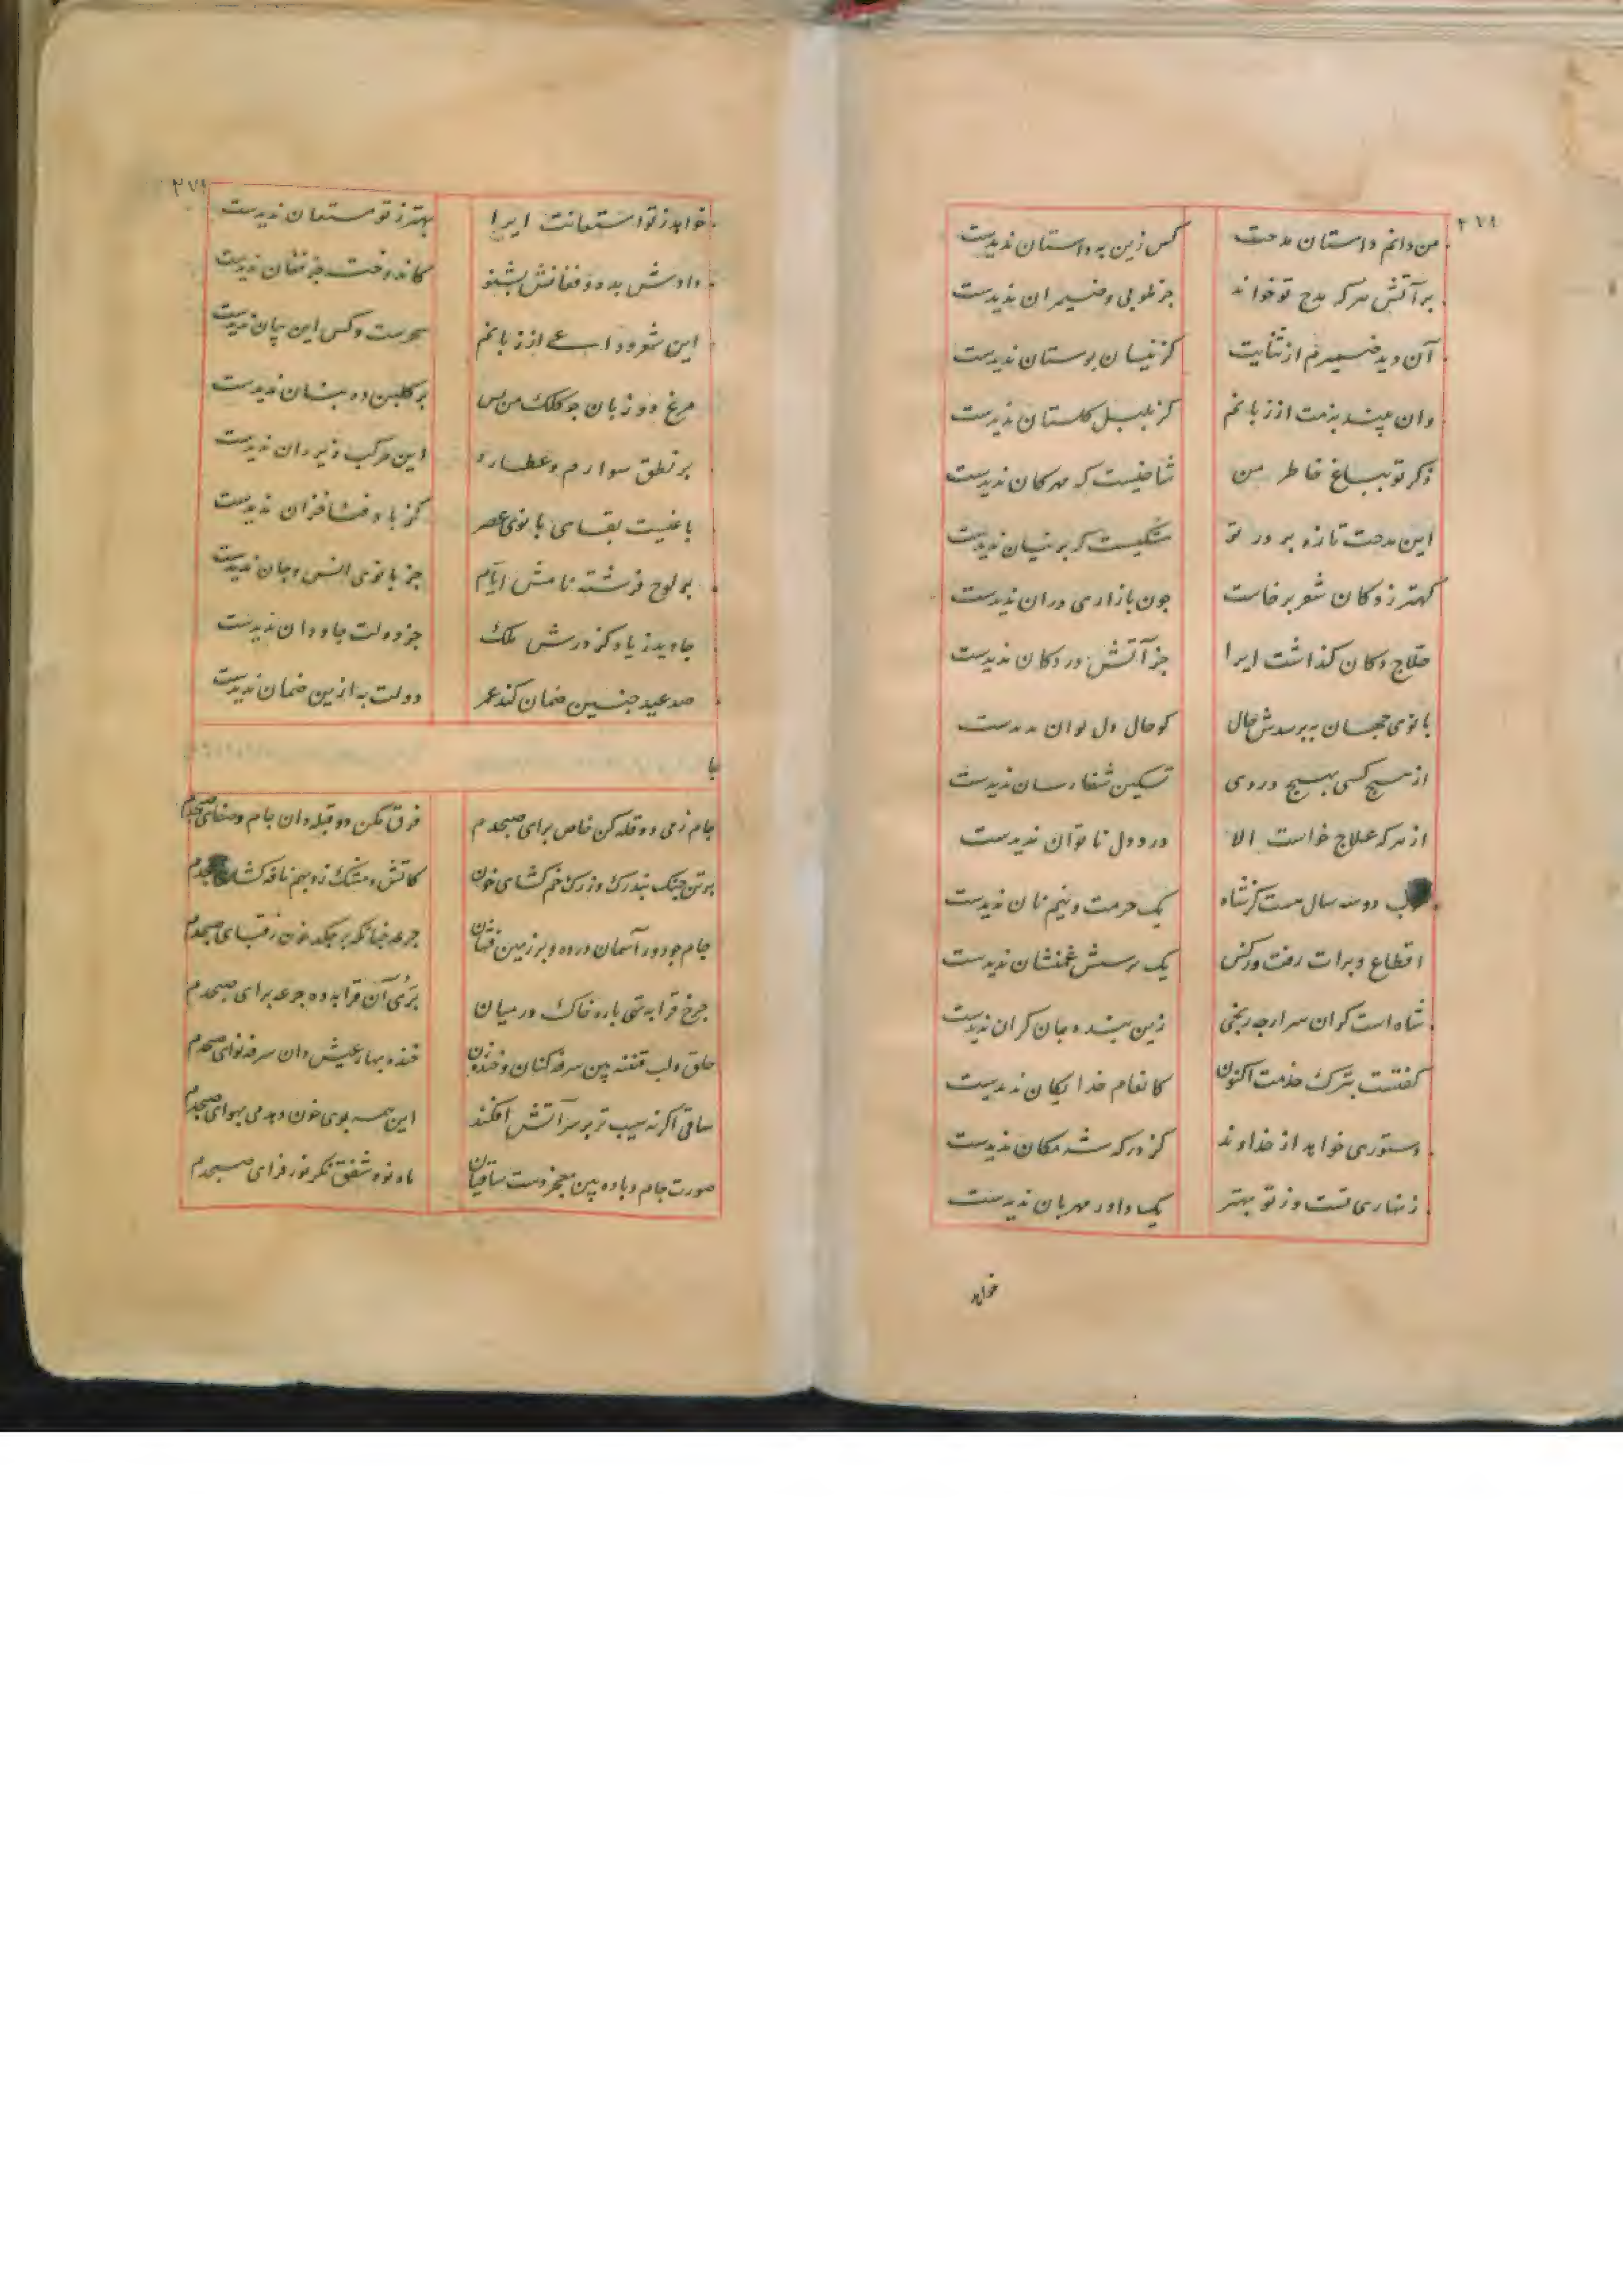 ۲۷۸
من دانم داستان مدحت کس زین به داستان ندیدست
بر آتش هر که مدح تو خواند جز طوبی و ضیمران ندیدست
آن دید ضمیرم از ثنایت کز نیسان بوستان ندیدست
وان بیند بزمت از زبانم کز بلبل گلستان ندیدست
ذکر تو بباغ خاطر من شاخیست که مهرکان ندیدست
این مدحت تازه بر در تو مشکیست که پرنیان ندیدست
کهتر ز دکان شعر برخاست چون بازاری در ان ندیدست
حلاج دکان گذاشت ایرا جز آتش در دکان ندیدست
بانوی جهان بپرسدش حال کو حال دل
از هیچ کسی بهیچ دردی تسکین شفارسان ندیدست
از هر که علاج خواست الا درد دل ناتوان ندیدست
دو سه سال هست کز شاه یک حرمت و نیم نان ندیدست
اقطاع و برات رفت وز کس یک پرسش غمنشان ندیدست
شاه است گران سر ارچه رنجی زین بنده جان گران ندیدست
گفتست بترک خدمت اکنون کانعام خدایگان ندیدست
دستوری خواهد از خداوند کز درگه شه مکان ندیدست
زنهاری تست وز تو بهتر یک داور مهربان ندیدست
خواهد
۲۷۹
خواهد ز تو استعانت ایرا بهتر ز تو مستعان ندیدست
دادش بده و فغانش بشنو کاندوخت جز فغان ندیدست
این شعر وداعی از زبانم سحرست و کس این بیان ندیدست
مرغ دو زبان چو کلک من بس بر گلبن ده بنان ندیدست
بر نطق سوارم و عطارد این مرکب زیر ران ندیدست
باغیست بقای بانوی عصر کز باد فنا خزان ندیدست
بر لوح فرشته نامش ایام جز بانوی انس و جان ندیدست
جاوید زیاد کز درش ملک جز دولت جاودان ندیدست
صد عید چنین ضمان کند عمر دولت به ازین ضمان ندیدست
جام ز می دو قله کن خاص برای صبحدم فرق مکن دو قبله دان جام و صفای صبحدم
بر تن چنگ بند رگ وز رگ خم گشای خون کاتش و مشک زد بهم نافه گشای صبحدم
جام چو دور آسمان درده و بر زمین فشان جرعه چنانکه برچکد خون ز قبای صبحدم
چرخ قرابه تهی پاره خاک در میان پری آن قرابه ده جرعه برای صبحدم
حلق و لب قننه بین سرفه کنان و خنده زن خنده بهار عیش دان سرفه نوای صبحدم
ساقی اگر نه سیب تر بر سر آتش افکند این همه بوی خون دهد می بهوای صبحدم
صورت جام و باده بین معجز دست ساقیان ماه نو و شفق نگر نور فزای صبحدم